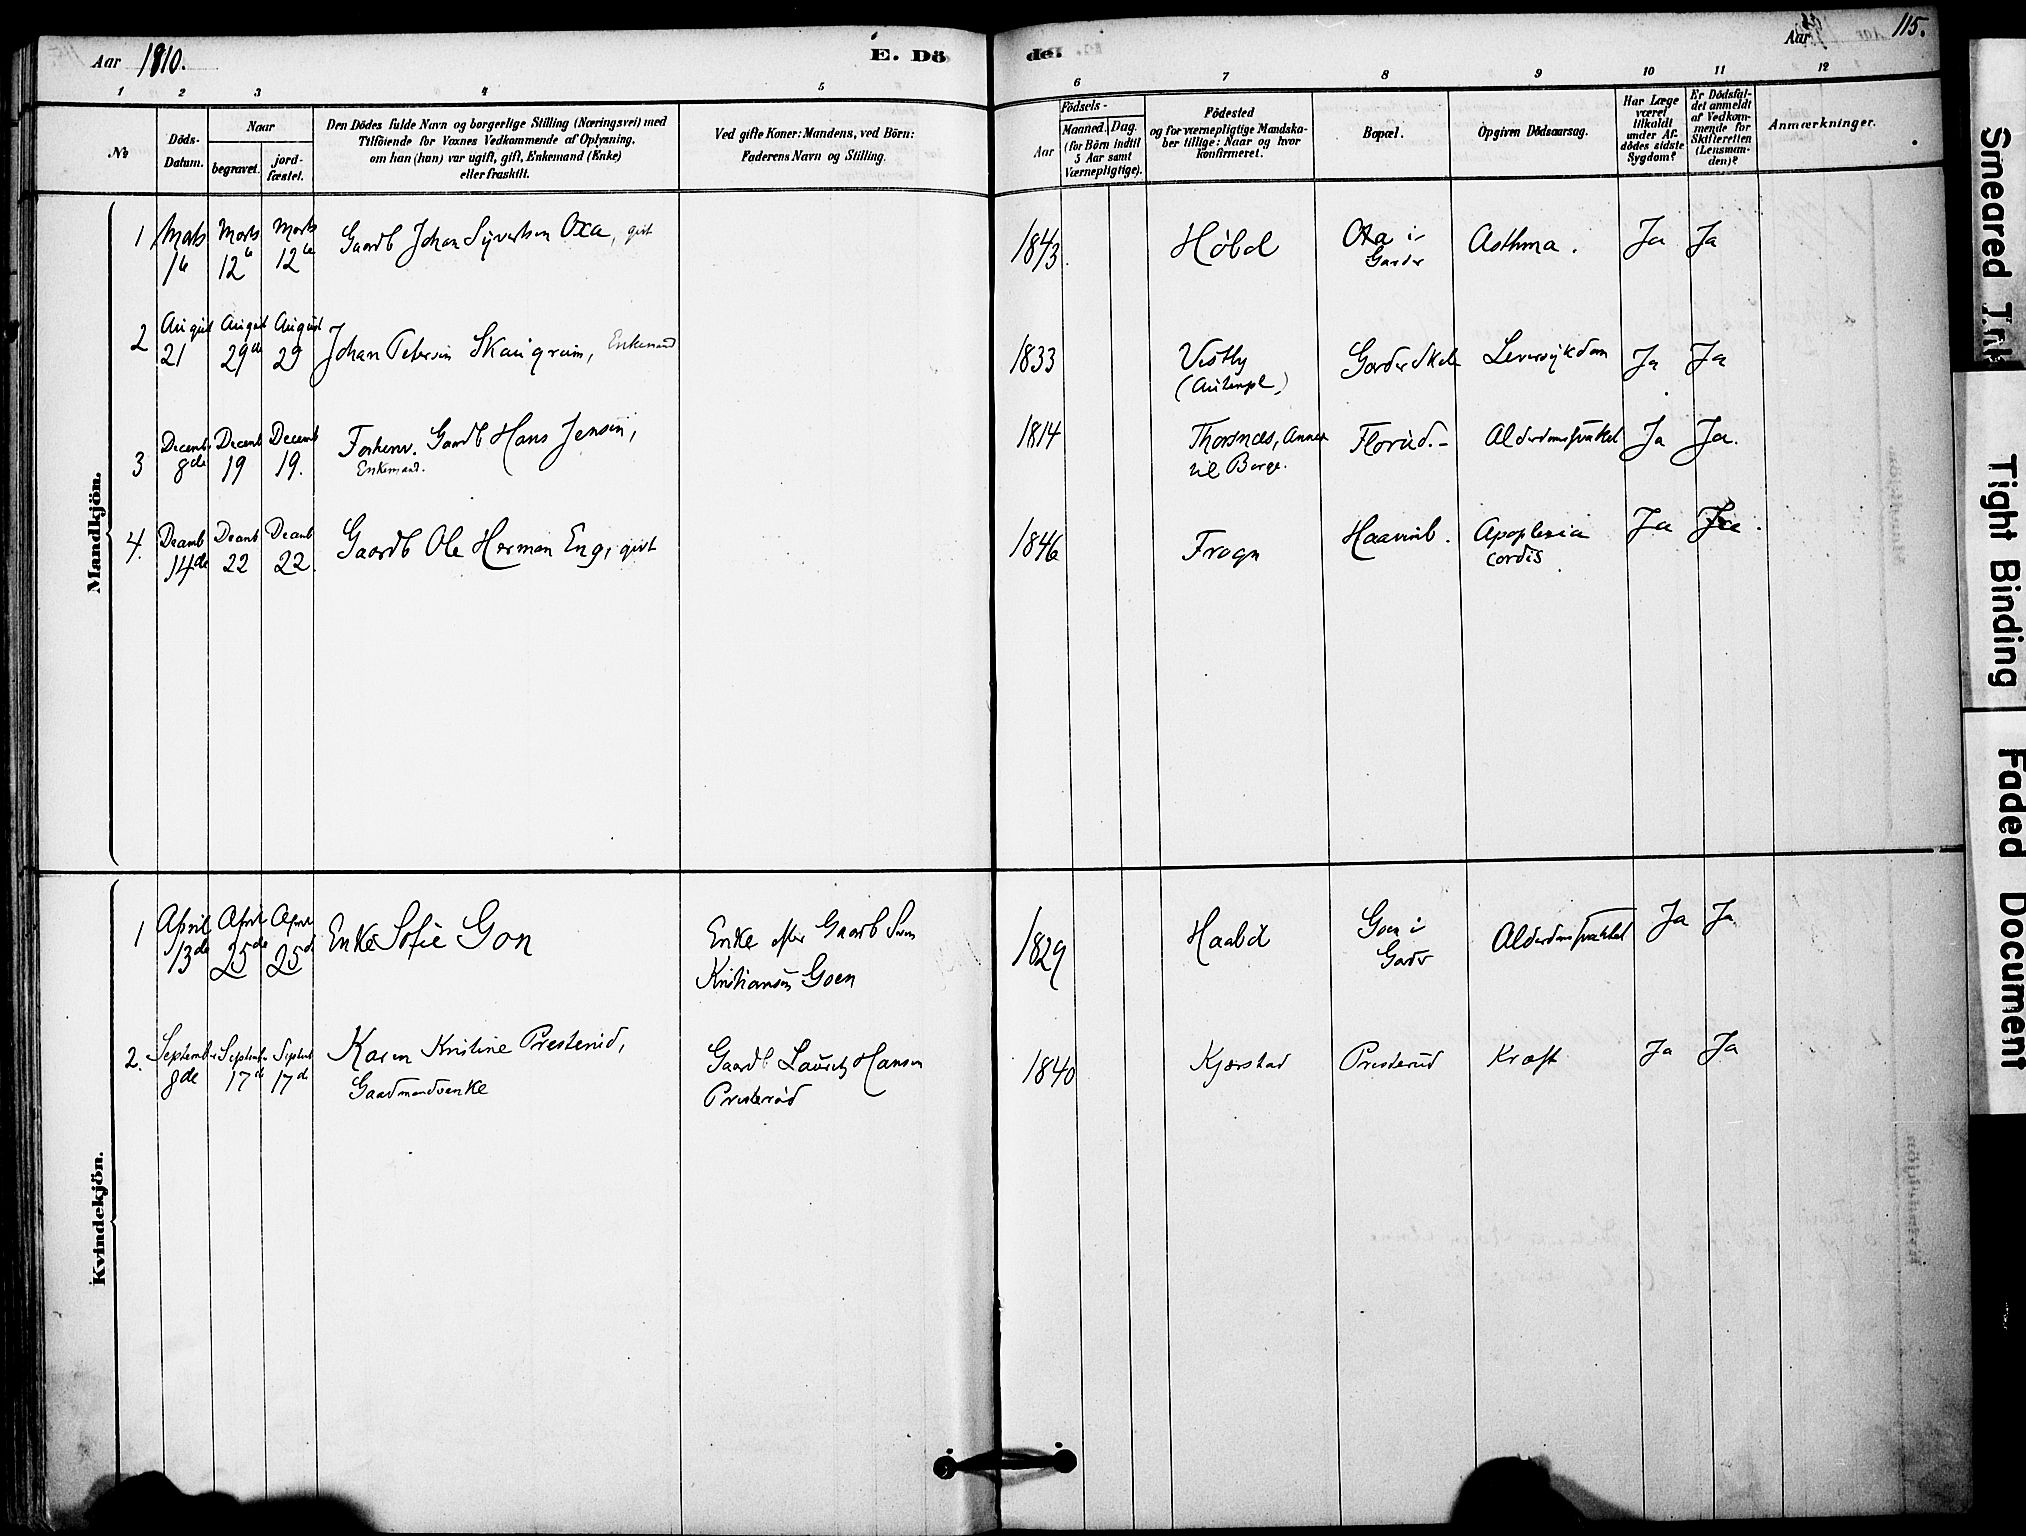 115.
Aar 1910.
E. Döde.
Aar
1 2 3 4 5 6 7 8 9 10 11 12
No
Döds-Datum.
Naar
begravet.
jord-fæstet.
Den Dödes fulde Navn og borgerlige Stilling (Næringsvei) med
Tilföiende for Voxnes Vedkommende af Oplysning,
om han (hun) var ugift, gift, Enkemand (Enke)
eller fraskilt.
Ved gifte Koner: Mandens, ved Börn:
Faderens Navn og Stilling.
Födsels-
Aar
Maaned. Dag.
(for Börn indtil
5 Aar samt
Værnepligtige).
Födested
og for værnepligtige Mandska-
ber tillige: Naar og hvor
konfirmeret.
Bopæl.
Opgiven Dödsaarsag.
Har Læge
været
tilkaldt
under Af-
dödes sidste
Sygdom?
Er Dödsfal-
det anmeldt
af Vedkom-
mende for
Skifteretten
(Lensman-
den)?
Anmærkninger.
Mandkjön.
1 Marts Marts Marts Gaardb Johan Syvertsen Oxa, gift 1843 Høbøl Oxa i Asthma. Ja Ja
12 12 Garder
2 August August August Johan Petersen Skaugrum, Enkemand 1833 Vestby Garder Skole Leversykdom Ja Ja
21 29de 29
3 Decemb Decemb Decemb Forhenv. Gaardb Hans Jensen, 1814 Thorsnæs, Annex Florud. Alderdomssvakhet Ja Ja.
8de 19 19. Enkemand. til Borge.
4. Decemb Decemb Decemb Gaardb Ole Herman Eng, gift 1846 Frogn Apoplexia Ja Ja.
14de 22 22. cordis
Kvindekjön.
1 April April April Enke Sofie Gon Enke efter Gaardb 1829 Haabøl Goen i Alderdomssvakhet Ja Ja
13de 25de 25d Kristiansen Goen Garder
2. Septemb Septemb Septemb Karen Kristine Presterud, Gaardb Lauritz Hansen 1840 Kjærstad Presterud Kræft Ja Ja
8de 17d 17d Gaardmandsenke Presterud
Smeared Ink
Tight Binding
Faded Document